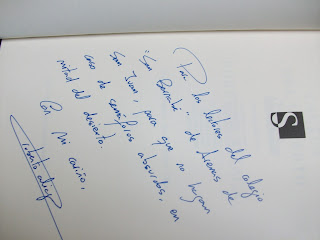 Para los lectores del colegio
"San Bernabé", de Arenas de
San Juan, para que no hagan
caso de semáforos absurdos, en
mitad del desierto.
Con mi cariño,
S